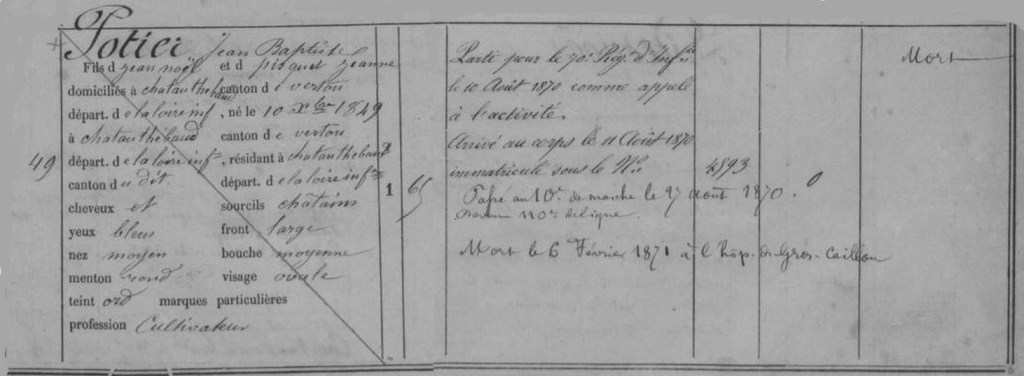 Potier Jean Baptiste
Fils d jean noël et d pisquet jeanne
domiciliés à chatauthebaud canton d e vertou
départ. d e la loire inf , né le 10 Xbre 1849
à chatauthébaud canton d e vertou
49 départ. d e la loire infre , résidant à chatauthebaud
canton d u dit départ. d e la loire infre 1 65
cheveux et sourcils chatains
yeux bleus front large
nez moyen bouche moyenne
menton rond visage ovale
teint ord marques particulières
profession Cultivateur
Parti pour le 70e Rég. d'Infie
le 10 Août 1870 comme appelé
à l'activité.
Arrivé au corps le 11 Août 1870
immatriculé sous le No 4593
Passé au 10e de marche le 27 août 1870.
Devenu 110e de ligne.
Mort le 6 Février 1871 à l'hôp. du Gros-Caillou
Mort